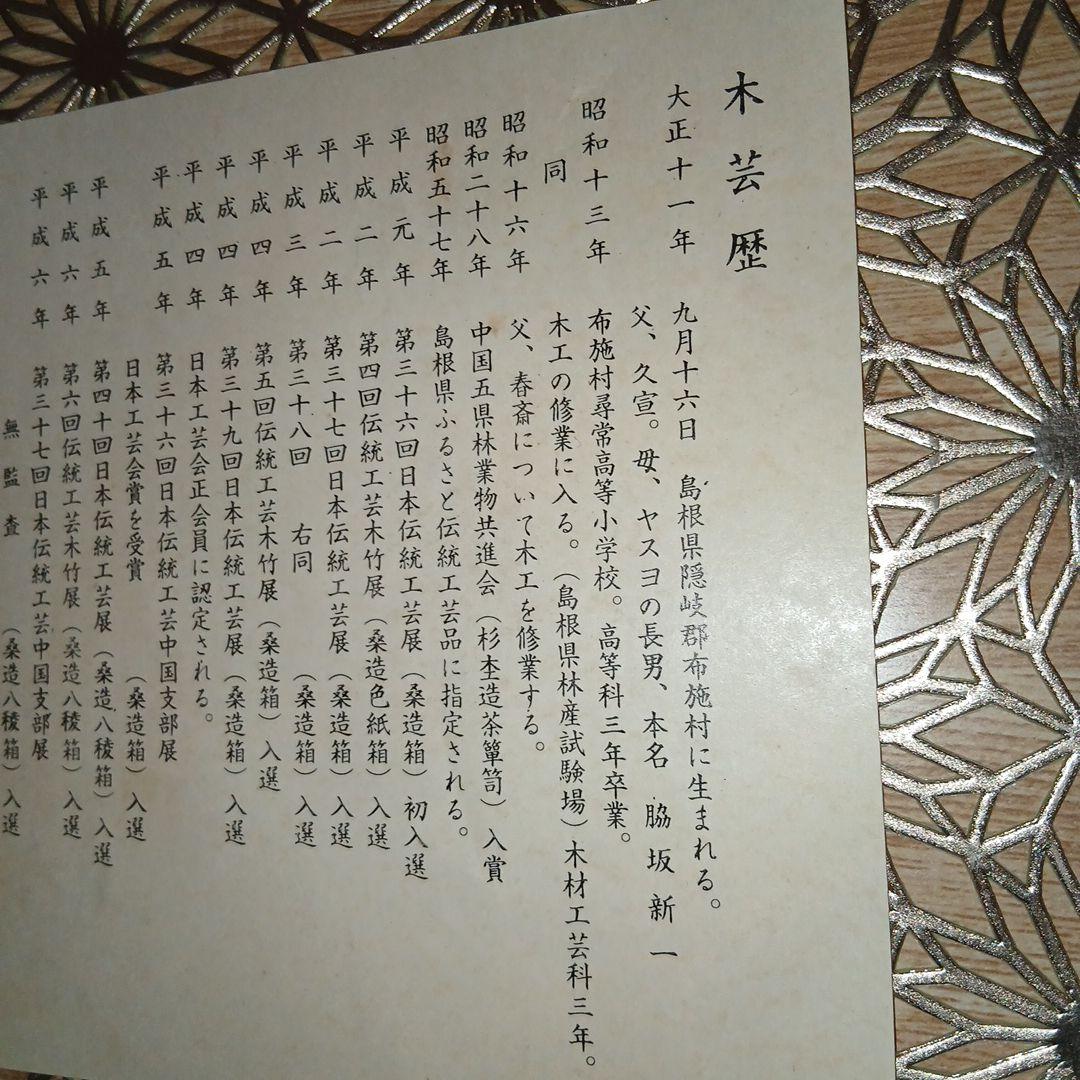 木芸歴
大正十一年 九月十六日 島根県隠岐郡布施村に生まれる。
父、久宣。母、ヤスヨの長男、本名 脇坂新一
昭和十三年 布施村尋常高等小学校。高等科三年卒業。
同 木工の修業に入る。(島根県林産試験場)木材工芸科三年。
昭和十六年 父、春斎について木工を修業する。
昭和二十八年 中国五県林業物共進会(杉杢造茶箪笥)入賞
昭和五十七年 島根県ふるさと伝統工芸品に指定される。
平成元年 第三十六回日本伝統工芸展(桑造箱)初入選
平成二年 第四回伝統工芸木竹展(桑造色紙箱)入選
平成二年 第三十七回日本伝統工芸展(桑造箱)入選
平成三年 第三十八回 右同 (桑造箱)入選
平成四年 第五回伝統工芸木竹展(桑造箱)入選
平成四年 第三十九回日本伝統工芸展(桑造箱)入選
平成四年 日本工芸会正会員に認定される。
平成五年 第三十六回日本伝統工芸中国支部展
日本工芸会賞を受賞 (桑造箱)入選
平成五年 第四十回日本伝統工芸展(桑造八稜箱)入選
平成六年 第六回伝統工芸木竹展(桑造八稜箱)入選
平成六年 第三十七回日本伝統工芸中国支部展
無監査 (桑造八稜箱)入選